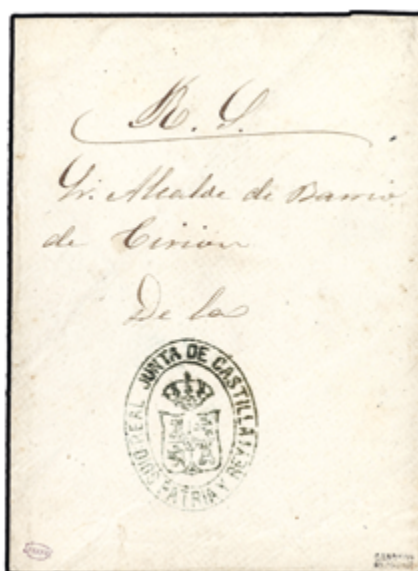 R. S.
Sr. Alcalde de Barrio
de Cirión
De la
REAL JUNTA DE CASTILLA
DIOS PATRIA Y REY